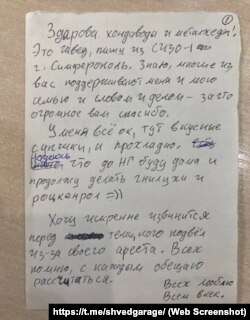 1
Здарова хондаводы и металхеды!
Это Швед, пишу из СИЗО-1
г. Симферополь. Знаю, многие из
вас поддерживают меня и мою
семью и словом и делом - за что
огромное вам спасибо.
У меня всё ок, тут вкусные
супчики, и прохладно.
Надеюсь что до НГ буду дома и
продолжу делать гнилухи и
рокнрол =))
Хочу искренне извинится
перед теми, кого подвёл
из-за своего ареста. Всех
помню, с каждым обещаю
рассчитаться.
Всех люблю
Всем внек.
https://t.me/shvedgarage/ (Web Screenshot)